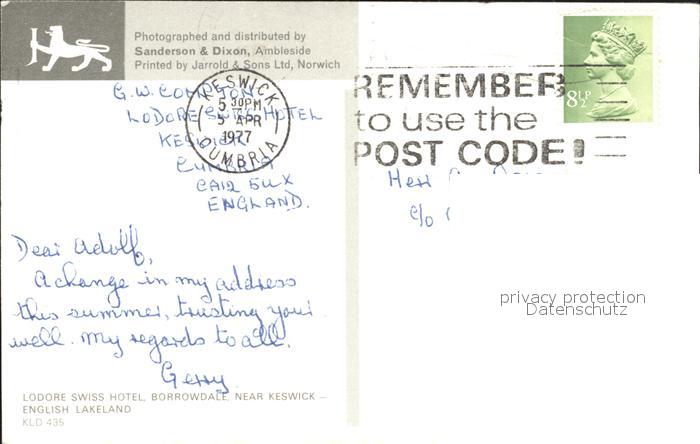 Photographed and distributed by
Sanderson & Dixon, Ambleside
Printed by Jarrold & Sons Ltd, Norwich
G.W. COMPTON
LODORE SWISS HOTEL
KESWICK
CUMBRIA
CA12 5UX
ENGLAND.
KESWICK
5 30PM
5 APR
1977
CUMBRIA
REMEMBER
to use the
POST CODE!
8½P
Herr
c/o
Dear Adolf,
A change in my address
this summer, trusting your
well. My regards to all.
Gerry.
privacy protection
Datenschutz
LODORE SWISS HOTEL, BORROWDALE, NEAR KESWICK –
ENGLISH LAKELAND
KLD 435